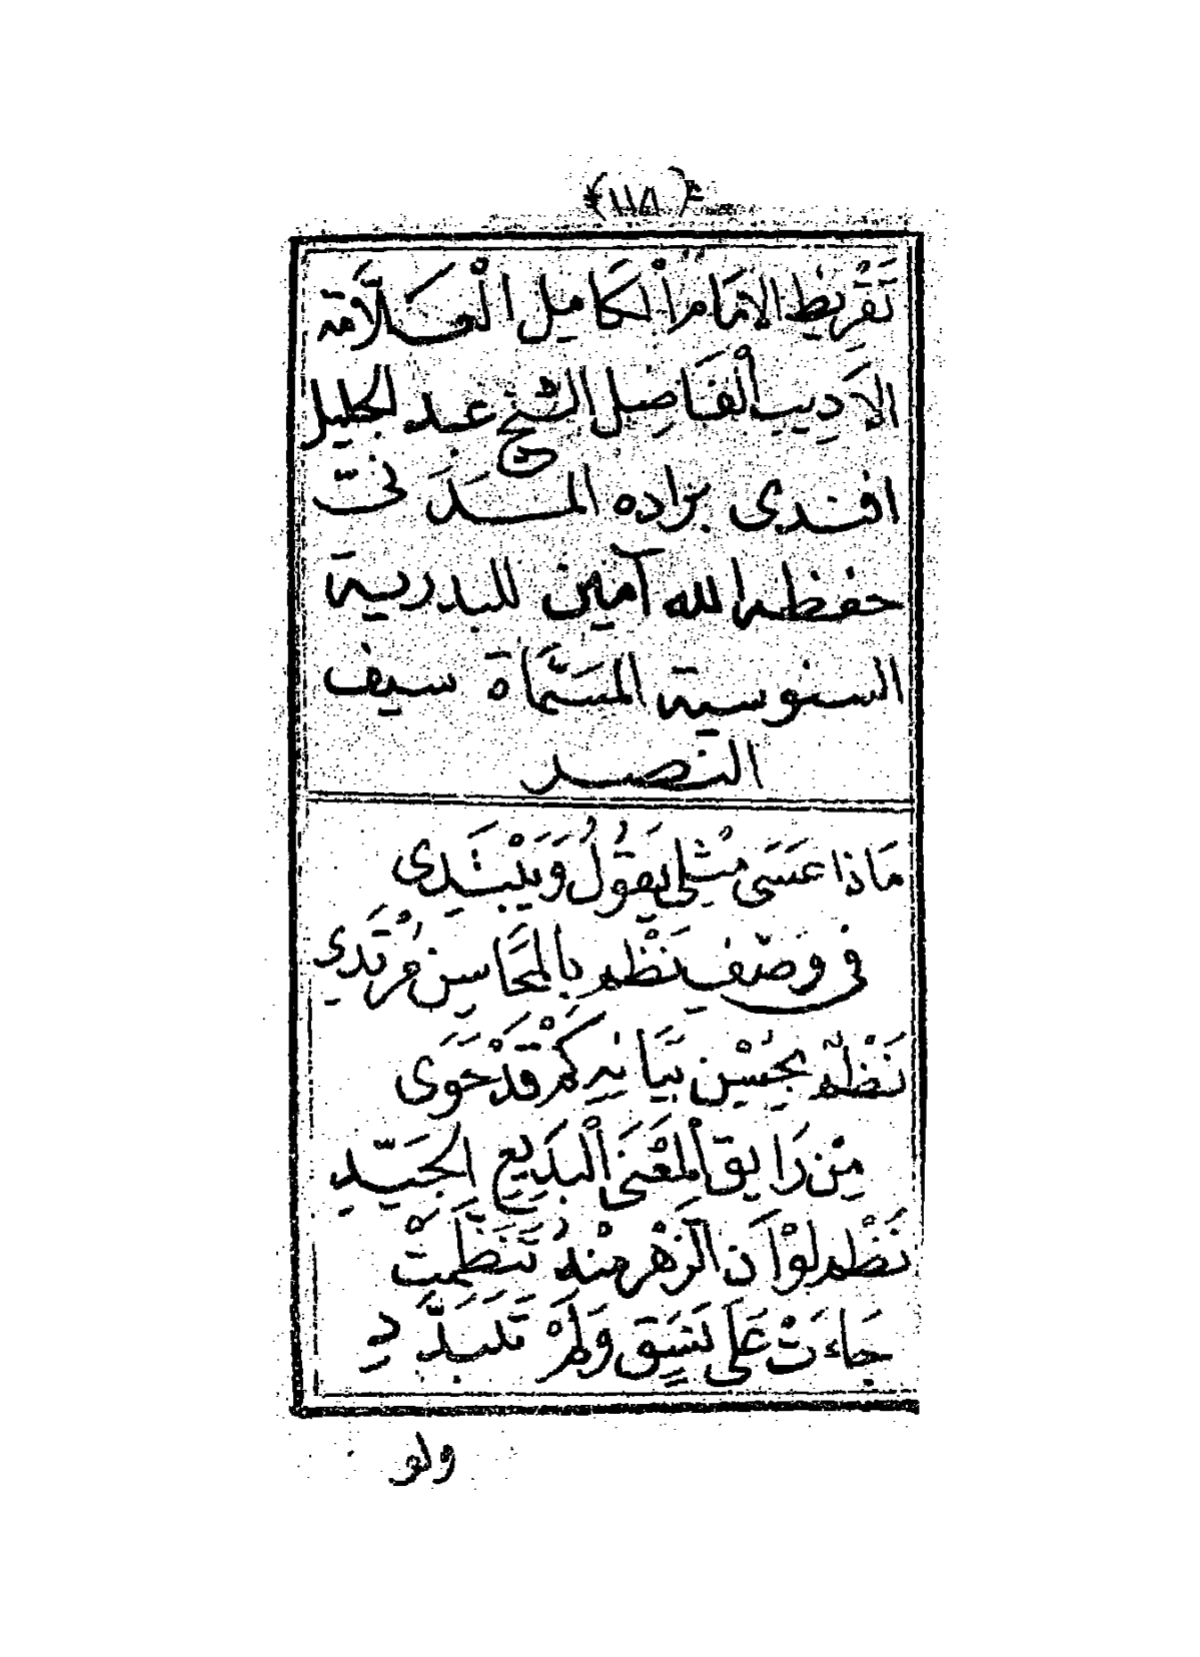 ﴿١١٨﴾
تَقْرِيظ الاِمَام اْلكَامِيل اْلعَلَّامة
الاَدِيب اْلفَاضِل الشيخ عبد الجليل
افندى براده المدَنىّ
حفظه الله آمين للبدرية
السنوسية المسَمَّاة سيف
النصر
مَاذا عَسَى مْثِلى يَقُولُ وَيَبْتَدِى
فى وَصْفِ نَظْم بِالمَحَاسِنِ مُرْتَدِي
نَظْمٌ بِحُسْنِ بَيَانِهِ كَمْ قَدْ حَوَى
مِنْ رَايِقِ اْلمَعْنَى اْلبَدِيعِ الجَيِّدِ
نَظْم لَوْ اَن الزَهْر مِنْهُ تَنَظَّمَتْ
جَاءَتْ عَلَى نَسَقٍ وَلَمْ تَتَبَدَّدِ
ولو